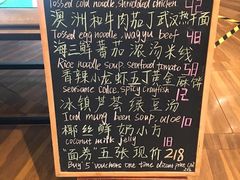 Tossed cold noodle, shredded chicken 42
澳洲和牛肉茄丁武汉热干面
Tossed egg noodle, wagyu beef 48
海三鲜蕃茄浓汤米线
Rice noodle soup, seafood tomato 58
香辣小龙虾五丁黄金麻饼
Seasame cake, spicy crayfish 12
冰镇芦荟绿豆汤
Iced mung bean soup, aloe 10
椰丝鲜奶小方
coconut milk jelly 18
"面券"五张现价218
Buy 5 vouchers one time discount price